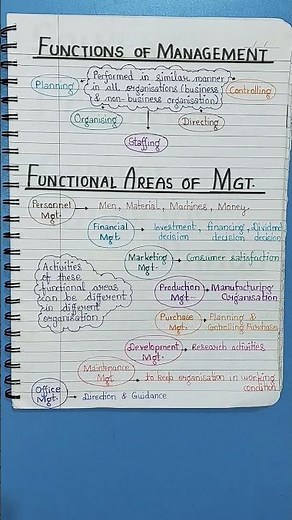 FUNCTIONS OF MANAGEMENT
Performed in similar manner
Planning in all organisations (business Controlling
& non-business organisation)
Organising Directing
Staffing
FUNCTIONAL AREAS OF MGT.
Personnel Mgt. → Men, Material, Machines, Money.
Financial Mgt. → Investment decision, financing decision, Dividend decision
Marketing Mgt. → Consumer satisfaction
Activities
of these
functional areas
can be different
in different
organisation.
Production Mgt. → Manufacturing Organisation
Purchase Mgt. → Planning & Controlling Purchases
Development Mgt. → Research activities
Maintenance Mgt. → to keep organisation in working condition
Office Mgt. → Direction & Guidance